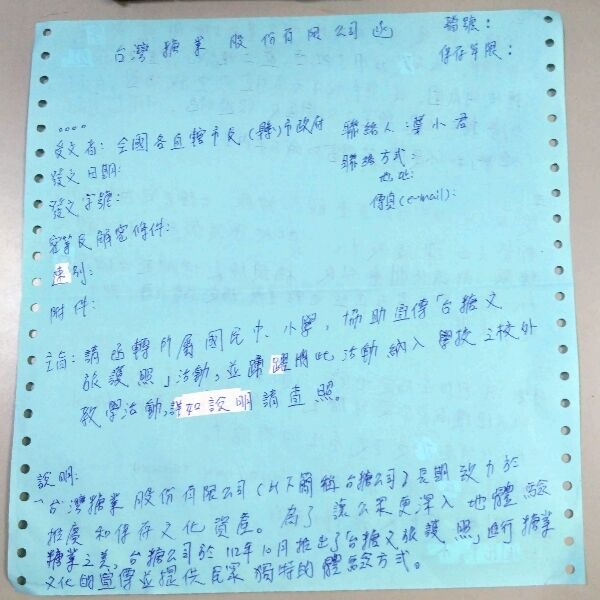 台灣糖業 股份有限公司 函
檔號:
保存年限:
....
受文者: 全國各直轄市長(縣)市政府
聯絡人:葉小君
發文日期:
聯絡方式:
地址:
發文字號:
傳真(e-mail):
密等及解密條件:
速別:
附件:
主旨: 請函轉所屬國民中、小學, 協助宣傳「台糖文
旅護照」活動, 並踴躍將此活動納入學校之校外
教學活動, 詳如說明請查照。
說明:
台灣糖業股份有限公司(以下簡稱台糖公司)長期致力於
推廣和保存文化資產。為了讓公眾更深入地體驗
糖業之美, 台糖公司於112年10月推出了「台糖文旅護照」, 進行糖業
文化的宣傳並提供民眾獨特的體驗方式。